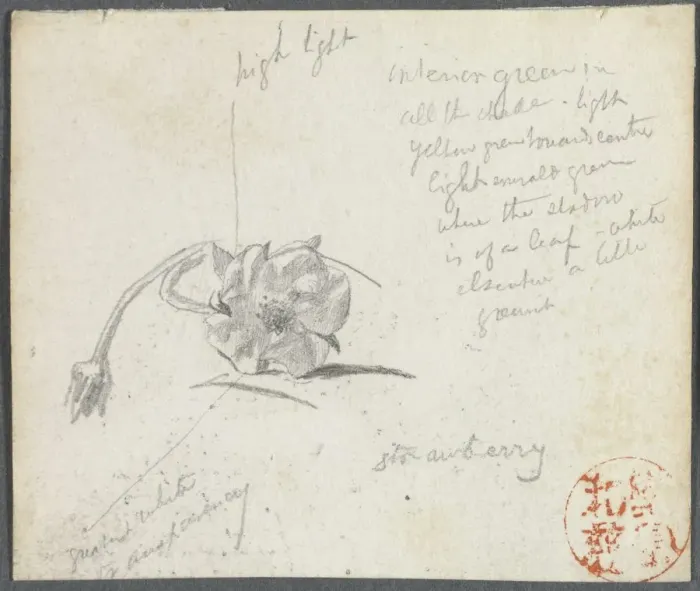 high light
interior green in
all the shade - light
yellow green towards centre
light emerald green
where the shadow
is of a leaf - white
elsewhere a little
strawberry
greatest white
transparency